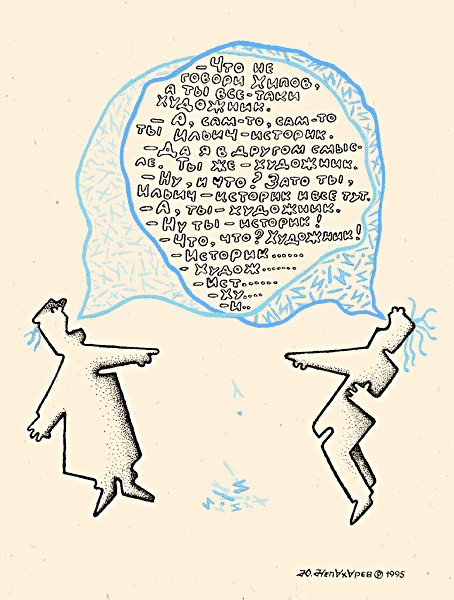 – Что не
говори Хипов,
а ты все-таки
художник.
– А, сам-то, сам-то
ты Ильич-историк.
– Да я в другом смыс-
ле. Ты же – художник.
– Ну, и что? Зато ты,
Ильич-историк и все тут.
– А, ты – художник.
– Ну ты – историк!
– Что, что? Художник!
– Историк......
– Худож.....
– Ист.......
– Ху....
– И..
Ю. Непахарев ℗ 1995